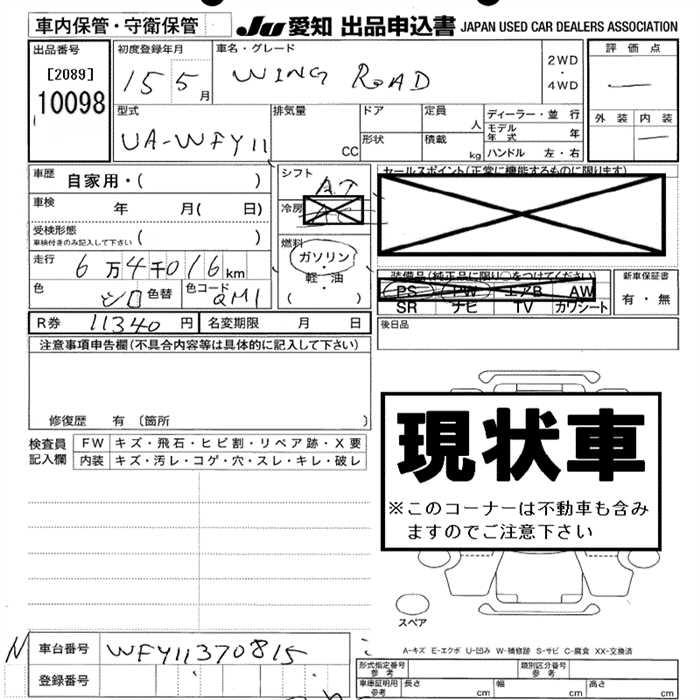 車内保管・守衛保管 JU 愛知 出品申込書 JAPAN USED CAR DEALERS ASSOCIATION
出品番号 初度登録年月 車名・グレード 評価点
[2089] 15 5月 WING ROAD 2WD・4WD
10098
型式 排気量 ドア 定員 ディーラー・並行 外装 内装
UA-WFY11 CC 人 モデル年式 年
形状 積載 kg ハンドル 左・右
車歴 自家用・( ) シフト AT セールスポイント(正常に機能するものに限ります)
車検 年 月( 日) 冷房
受検形態 ( )
車検付きのみ記入して下さい 燃料 ガソリン・軽・油 ( )
走行 6万4千016km 装備品(純正品に限り○をつけてください) 新車保証書
色 シロ 色替 色コード QM1 PS PW エアB AW 有・無
SR ナビ TV カワシート
R券 11340 円 名変期限 月 日 後日品
注意事項申告欄(不具合内容等は具体的に記入して下さい)
現状車
※このコーナーは不動車も含みますのでご注意下さい
修復歴 有〔箇所 〕
検査員記入欄 FW キズ・飛石・ヒビ割・リペア跡・X要
内装 キズ・汚レ・コゲ・穴・スレ・キレ・破レ
スペア
車台番号 WFY11370815 A-キズ E-エクボ U-凹み W-補修跡 S-サビ C-腐食 XX-交換済
登録番号 形式指定番号 参考 類別区分番号 参考
車庫証明用 参考 長さ cm 幅 cm 高さ cm